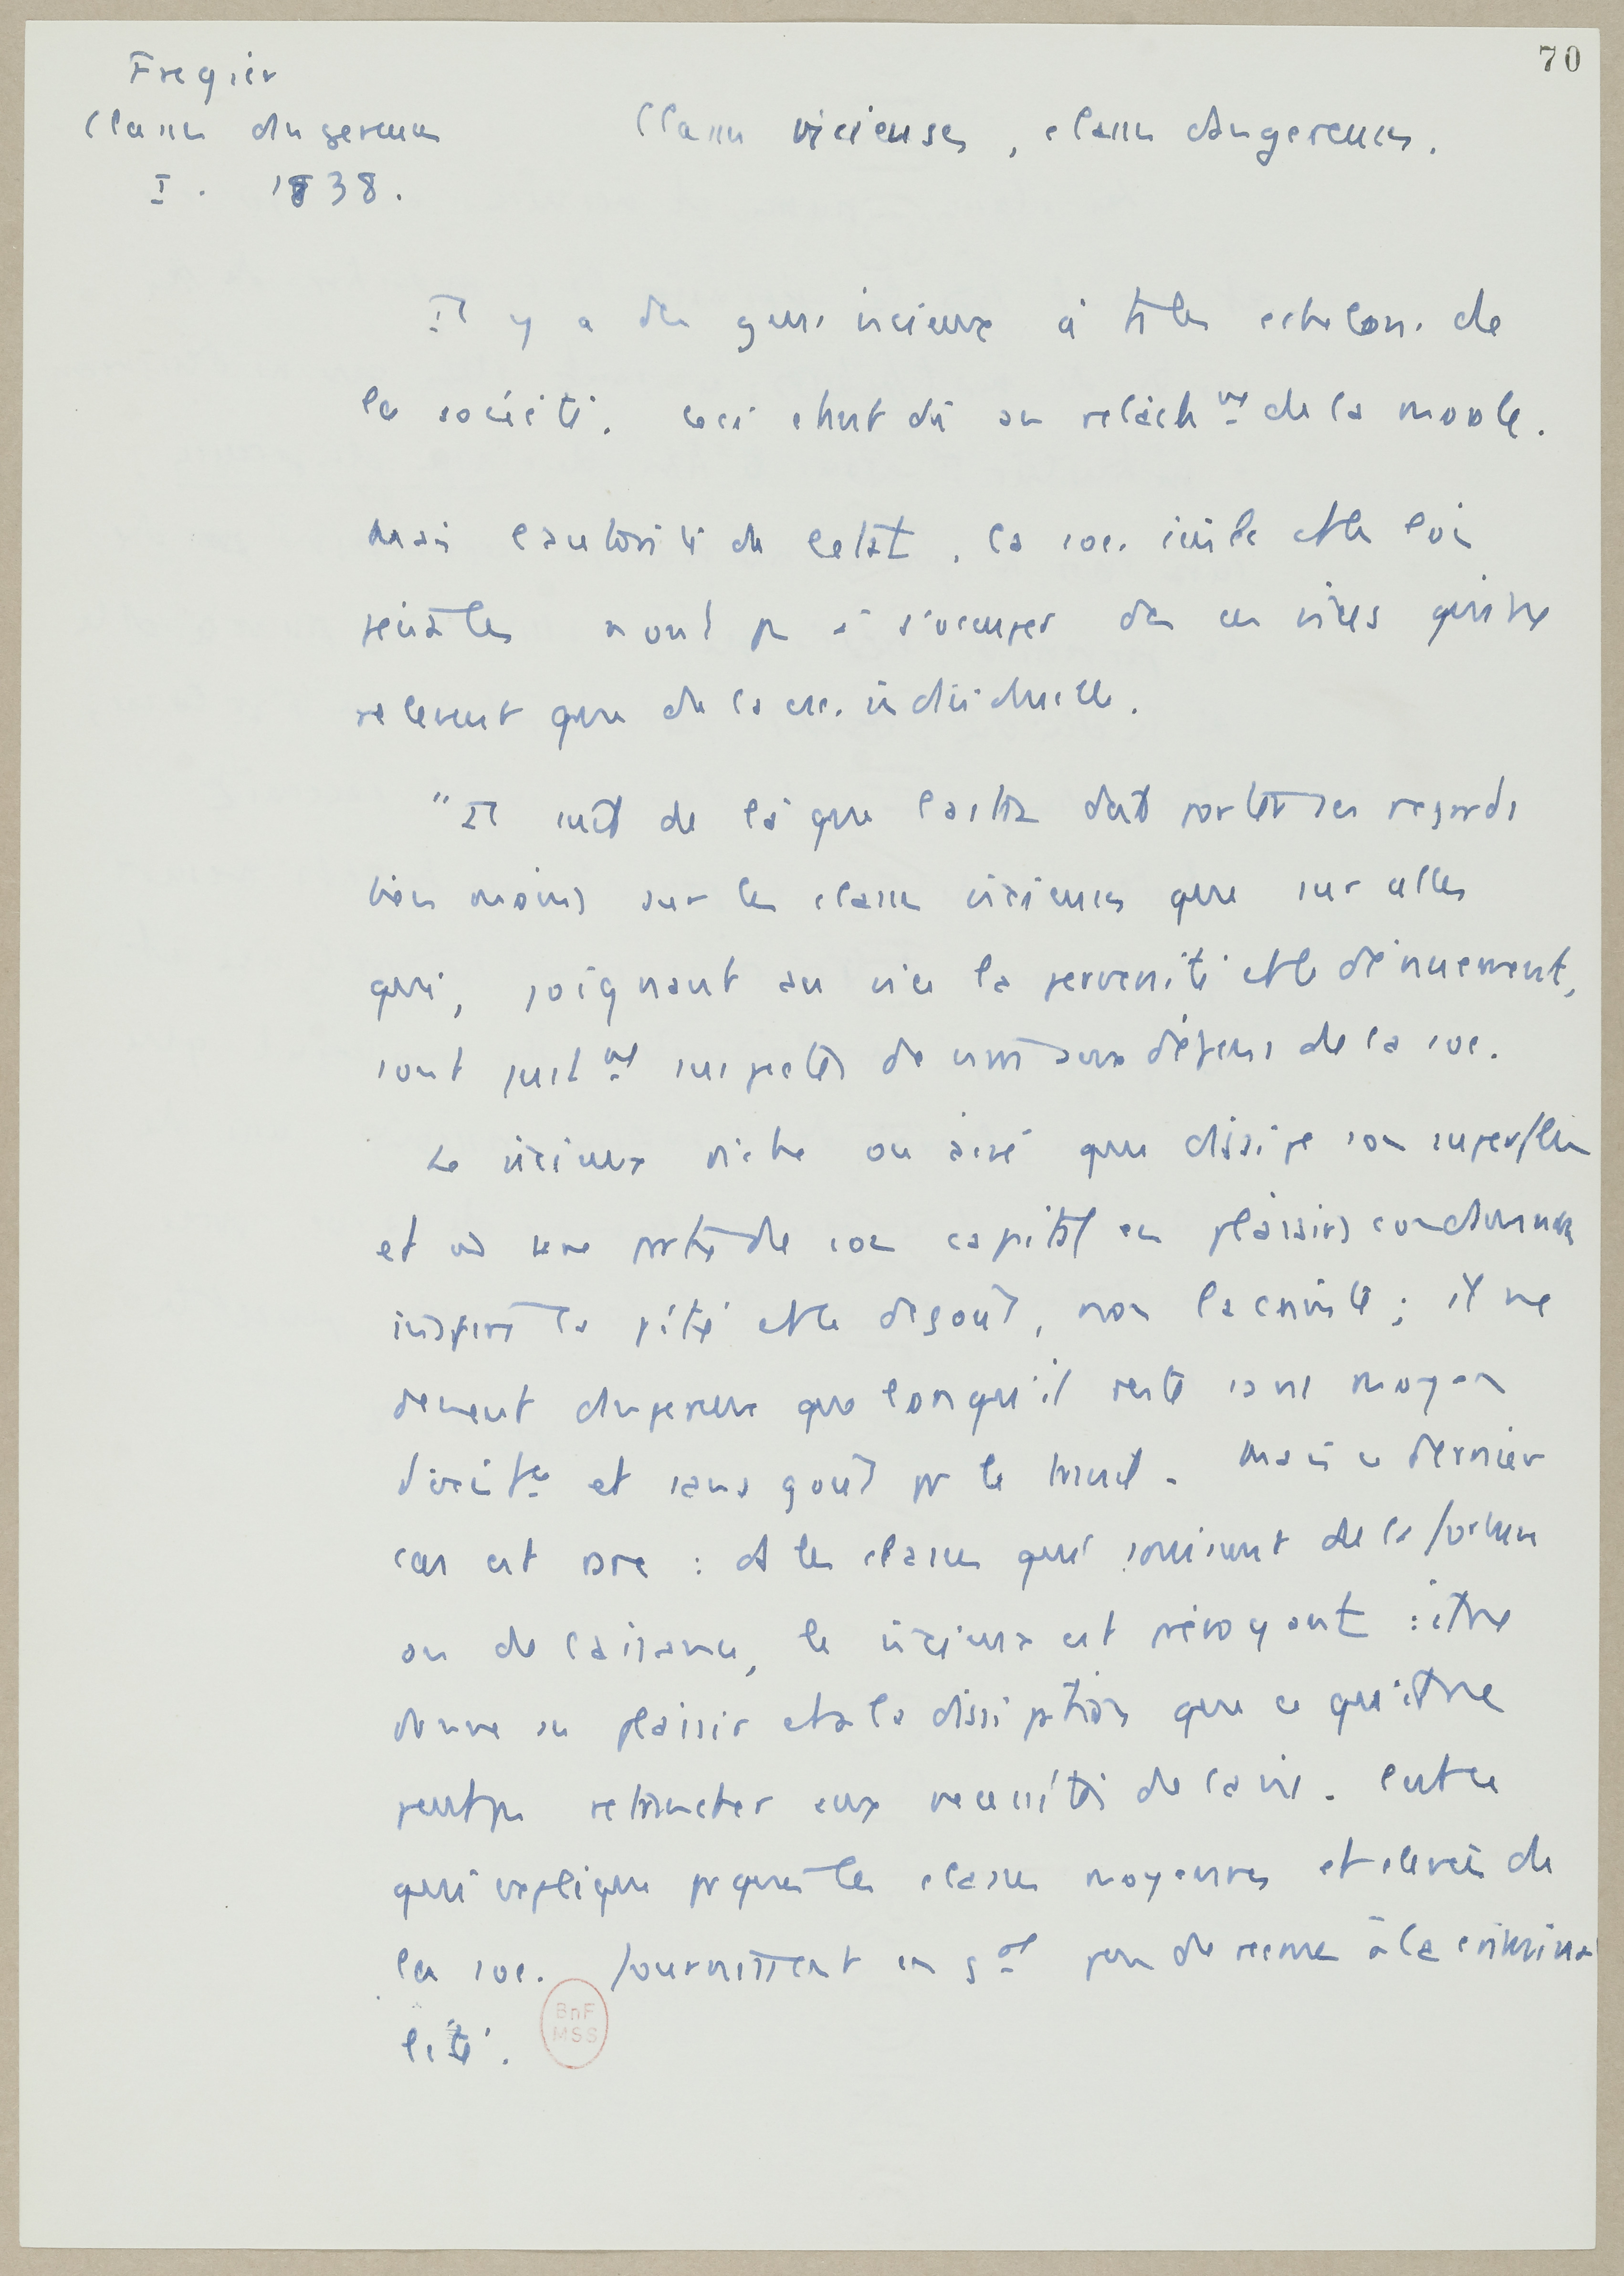 70
Fregier
Classes dangereuses
I. 1838.
Classes vicieuses, classes dangereuses.
Il y a des gens vicieux à ts les echelons de
la société. Ceci étant dû au relâchmt de la morale.
Mais l'autorité de l'etat, la soc. civile et les lois
pénales n'ont pas à s'occuper de ces vices qui ne
relevent que de la csc. individuelle.
"Il suit de là que l'adm doit porter ses regards
bien moins sur les classes vicieuses que sur celles
qui, joignant au vice la perversité et le dénuement,
sont justmt suspectes de vivre aux dépens de la soc.
Le vicieux riche ou aisé qui dissipe son superflu
et une partie de son capital en plaisirs condamnables
inspire la pitié et le dégoût, non la crainte; il ne
devient dangereux que lorsqu'il reste sans moyen
d'existce et sans goût pr le travail. Mais ce dernier
cas est rare : ds les classes qui jouissent de la fortune
ou de l'aisance, le vicieux est prévoyant : il ne
donne au plaisir et à la dissipation que ce qu'il ne
peut pas retrancher aux necessités de la vie. C'est ce
qui explique pquoi les classes moyennes et elevées de
la soc. fournissent en gal peu de recrues à la crimina
lité.
BnF
MSS